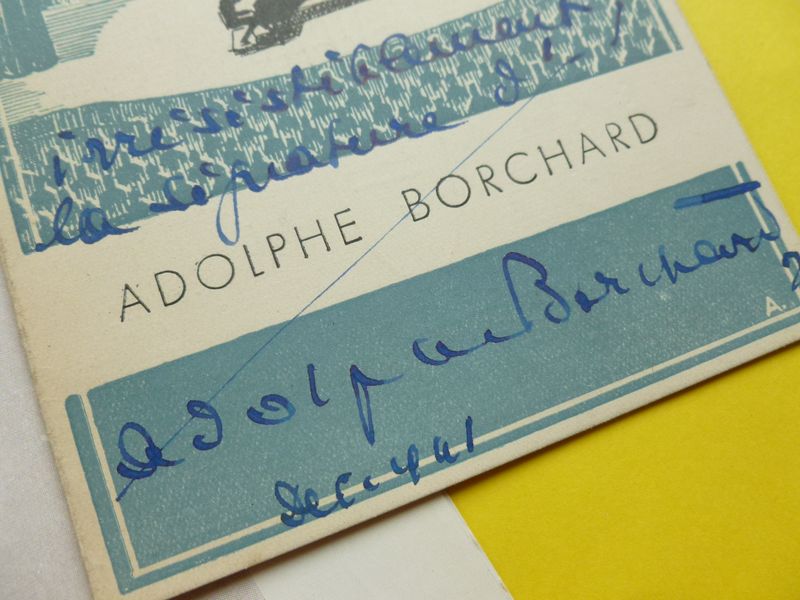 irrésistiblement
la signature d'
ADOLPHE BORCHARD
Adolphe Borchard
A.
Dec. 1941